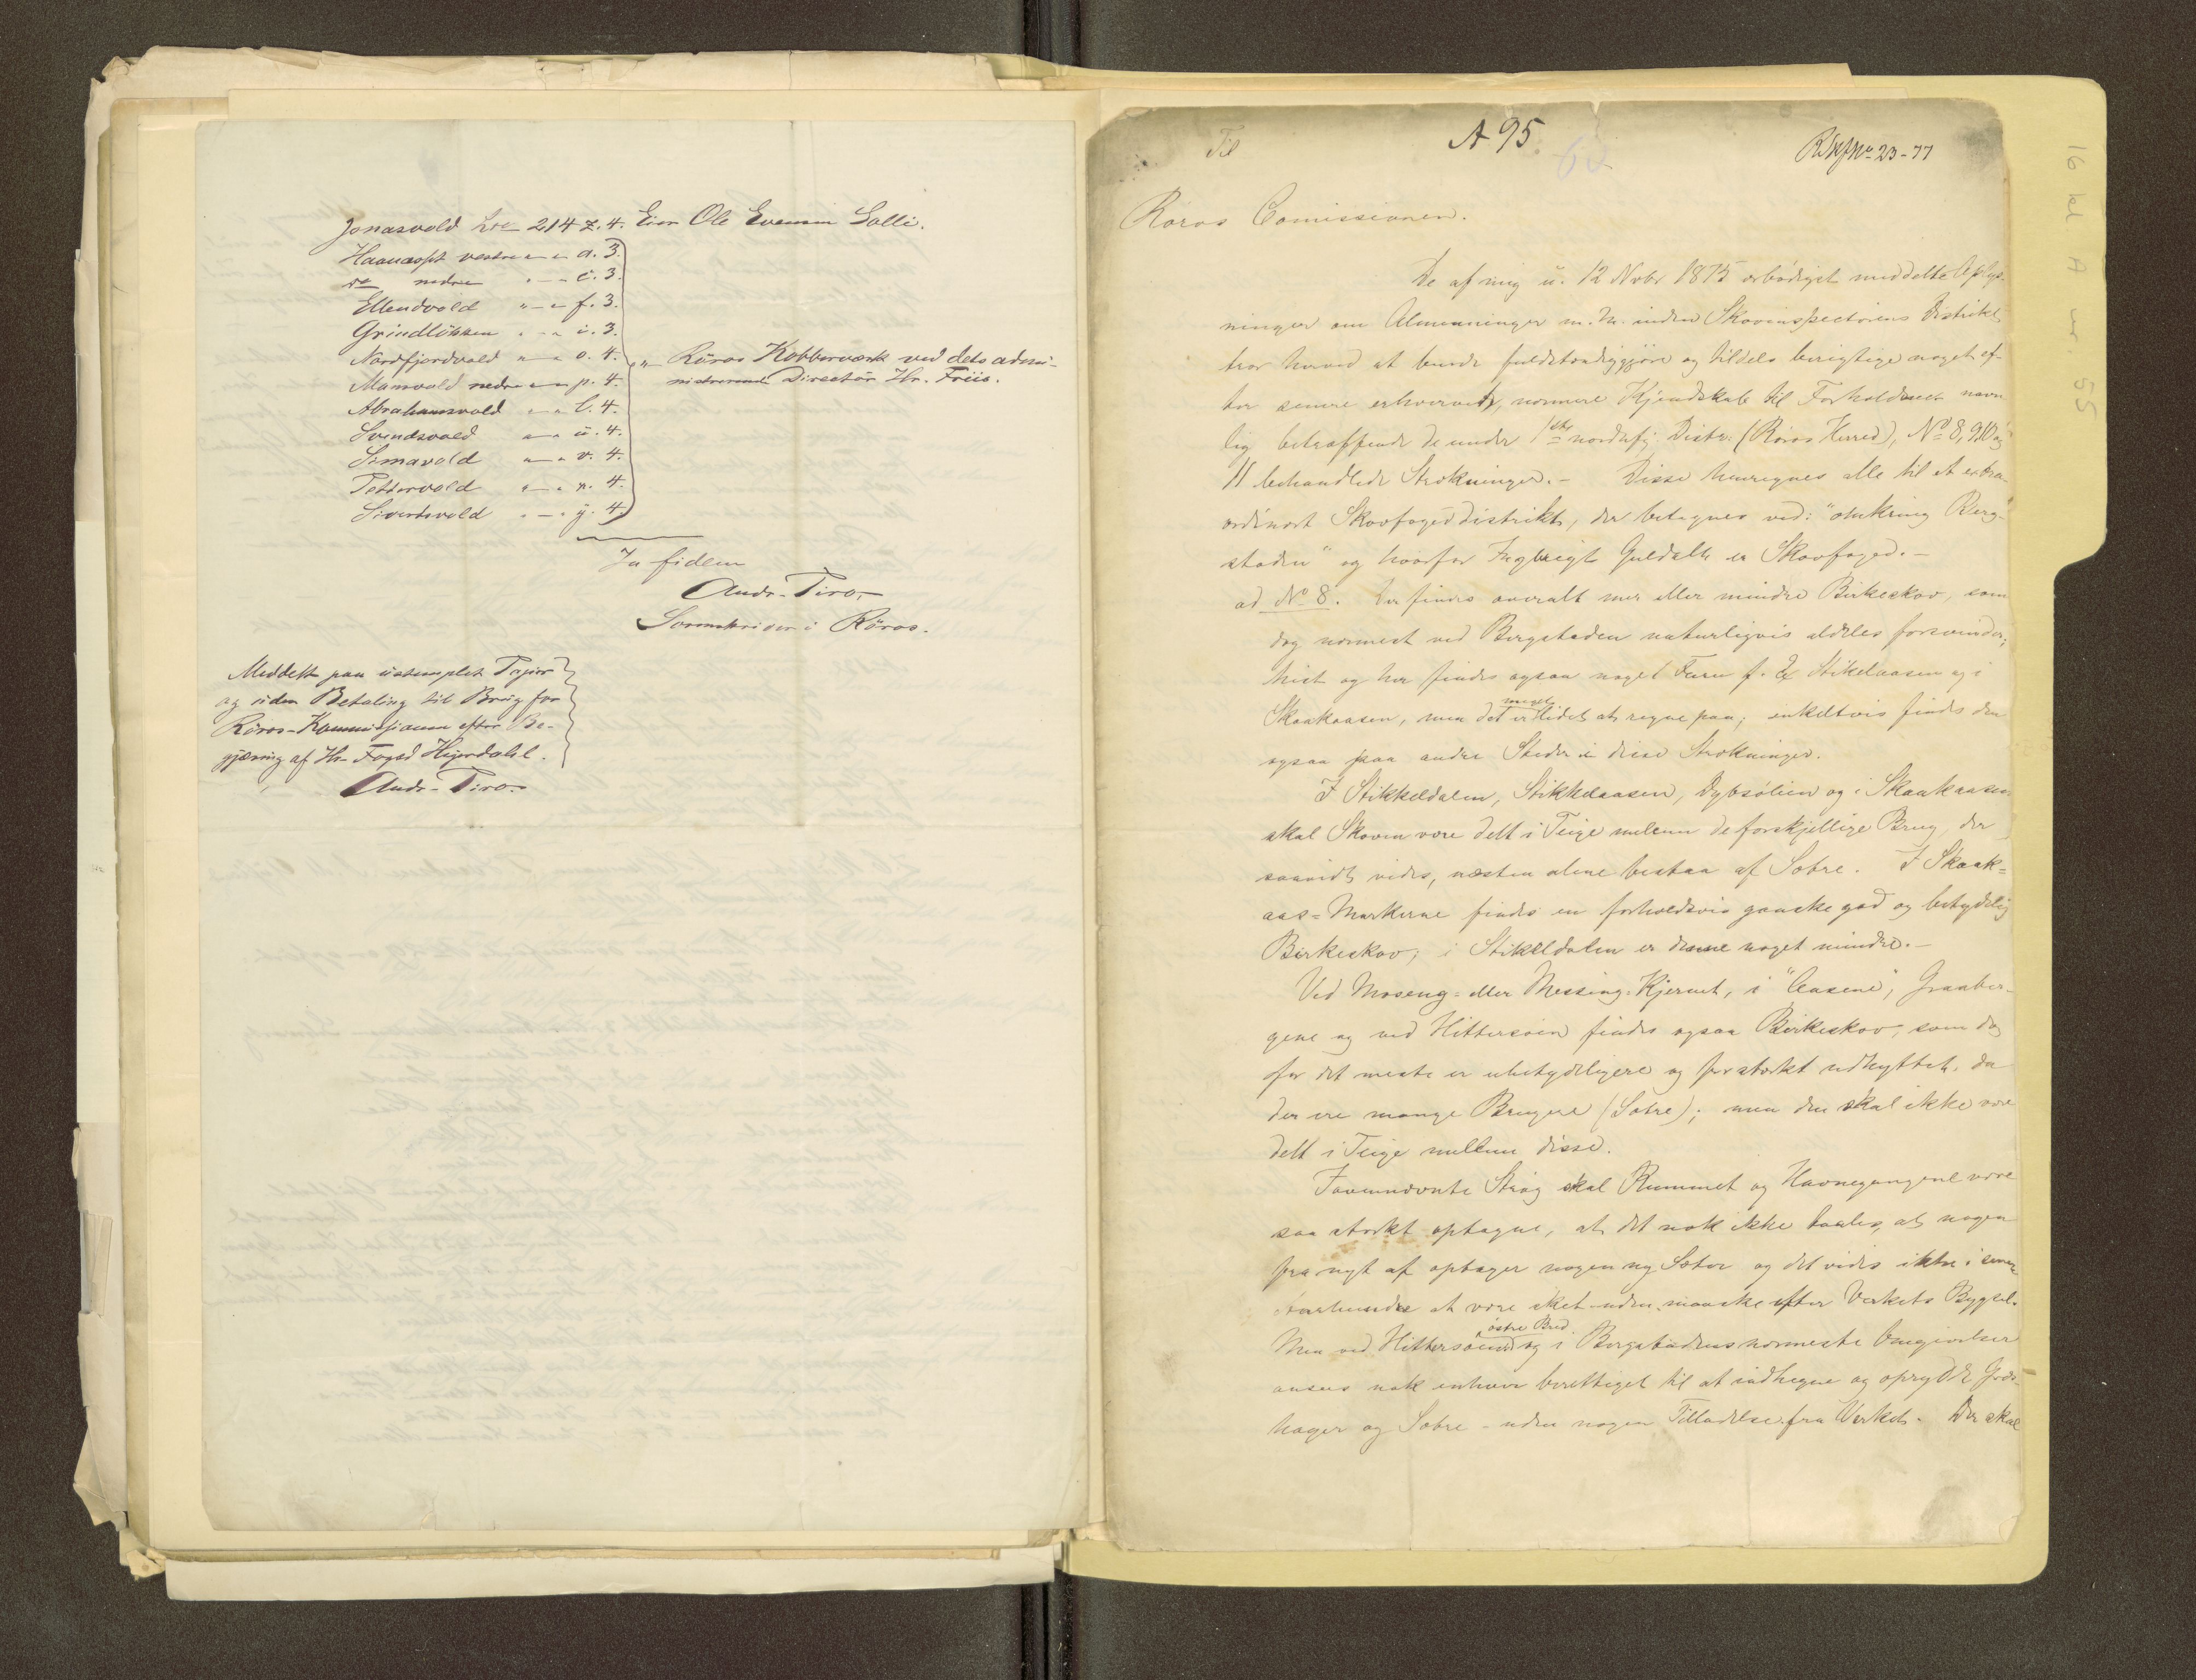 Jonasvold Lne 214 z. 4. Eier Ole Evensen Solli.
Haanæset vestre " - " a. 3.
do nedre " - " c. 3.
Ellendvold " - " f. 3.
Grindløkken " - " i. 3.
Nordfjordvold " - " o. 4.
Manvold nedre " - " p. 4.
Abrahamsvold " - " l. 4.
Svendsvold " - " ü. 4.
Simavold " - " v. 4.
Pettervold " - " n. 4.
Sivertsvold " - " y. 4.
" Röros Kobberværk ved dets admi-
nistrerende Director Hr. Friis.
In fidem
Andr. Piro,
Sorenskriver i Röros.
Meddelt paa ustemplet Papir
og uden Betaling til Brug for
Röros-Kommissionen efter Be-
gjæring af Hr. Foged Hijerdahl.
Andr. Piro.
A 95.
Til
Röros Comissionen.
De af mig u. 12 Novbr 1875 ærbödigst meddelte Oplys-
ninger om Almenninger m. M. inden Skovinspectörens Distrikt
tror herved at burde fuldstændiggjöre og tildels berigtige noget ef-
ter senere erhvervet, nærmere Kjendskab til Forholdene navn
lig betræffende de under 1ste nordnfj. Distr. (Röros Herred), No 8, 9, 10 og
11 behandlede Strækninger. - Disse henregnes alle til et extra-
ordinært Skovfogeddistrikt, der betegnes ved: "omkring Berg-
staden" og hvorfor Ingbrigt Guldalh er Skovfoged. -
ad No 8. Der findes overalt mer eller mindre Birkeskov, som
dog nærmest ved Bergstaden naturligvis aldeles forsvinder;
hist og her findes ogsaa noget Furu f. Ex Stikelaasen og i
Skaakaasen, men det er meget lidet at regne paa; enkeltvis findes den
ogsaa paa andre Steder i disse Strækninger.
I Stikkeldalen, Stikkelaasen, Dybsölien og i Skaakaasen
skal Skoven være delt i Teige mellem de forskjellige Brug, der
saavidt vides, næsten alene bestaa af Sætre. I Skaak=
aas=Markerne findes en forholdsvis ganske god og betydelig
Birkeskov; i Stikeldalen er denne noget mindre. -
Ved Moseng= eller Messing-Kjernet, i "Aasene", Graaber-
gene og ved Hittersöen findes ogsaa Birkeskov, som dog
for det meste er ubetydeligere og for stærkt udhyttet, da
der ere mange Brugere (Sætre); men den skal ikke være
delt i Teige mellem disse.
Iovennævnte Strög skal Rummet og Havnegangene være
saa stærkt optagne, at det nok ikke taales, at nogen
fra nyt af optager nogen ny Sæter og det vides ikke i senere
Aarhundre at være sket uden maaske efter Verkets Bygsel.
Men ved Hittersöens östre Bred og i Bergstadens nærmeste Omgivelser
ansees nok enhver berettiget til at indhegne og oprydde Græs-
hager og Sætre - uden nogen Tilladelse fra Verket. Der skal
16 kd A nr 55